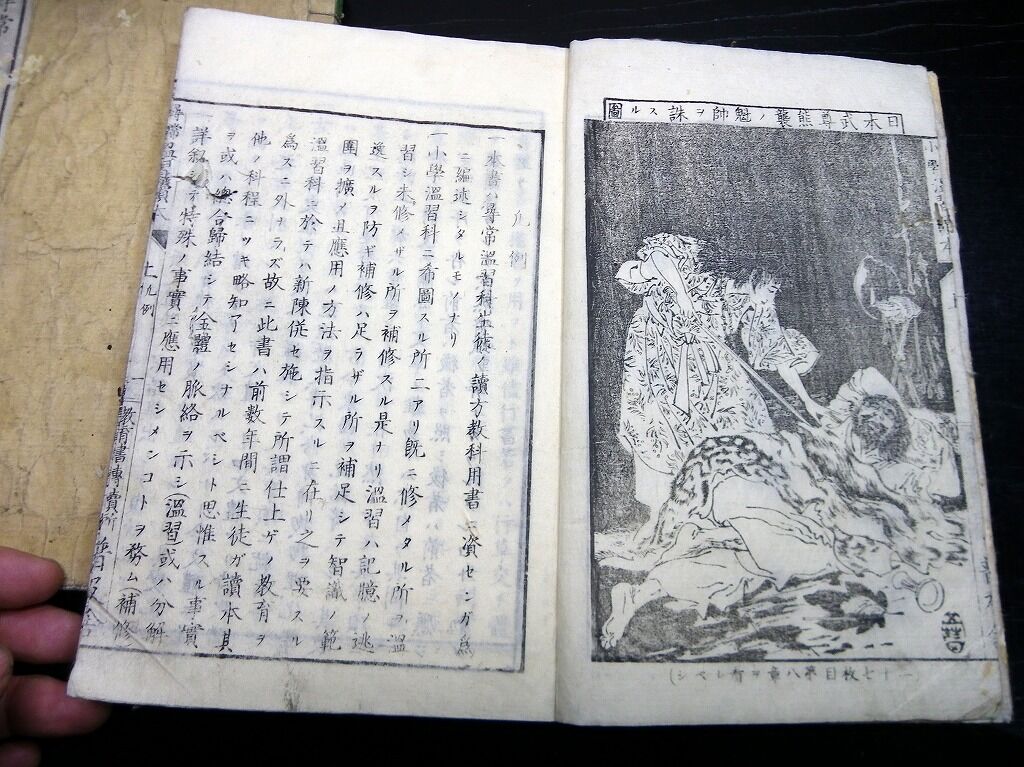 日本武尊熊襲ノ魁帥ヲ誅スル圖
(一十七枚目第八章ヲ看ルベシ)
凡例
一本書ハ尋常溫習科生徒ノ讀方教科用書ニ資センガ爲
ニ編述シタルモノナリ
一小學溫習科ニ希圖スル所二アリ旣ニ修メタル所ヲ溫
習シ未修メザル所ヲ補修スル是ナリ溫習ハ記臆ノ逃
逸スルヲ防ギ補修ハ足ラザル所ヲ補足シテ智識ノ範
圍ヲ擴メ且應用ノ方法ヲ指示スルニ在リ之ヲ要スル
溫習科ニ於テハ新陳倂セ施シテ所謂仕上ゲノ教育ヲ
爲スニ外ナラズ故ニ此書ハ前數年間ニ生徒ガ讀本其
他ノ科程ニツキ略知了セシナルベシト思惟スル事實
ヲ或ハ總合歸結シテ全體ノ脈絡ヲ示シ(溫習或ハ分解
詳敘シテ特殊ノ事實ニ應用セシメンコトヲ務ム(補修
上凡例
一
教育書轉賣所
尋常